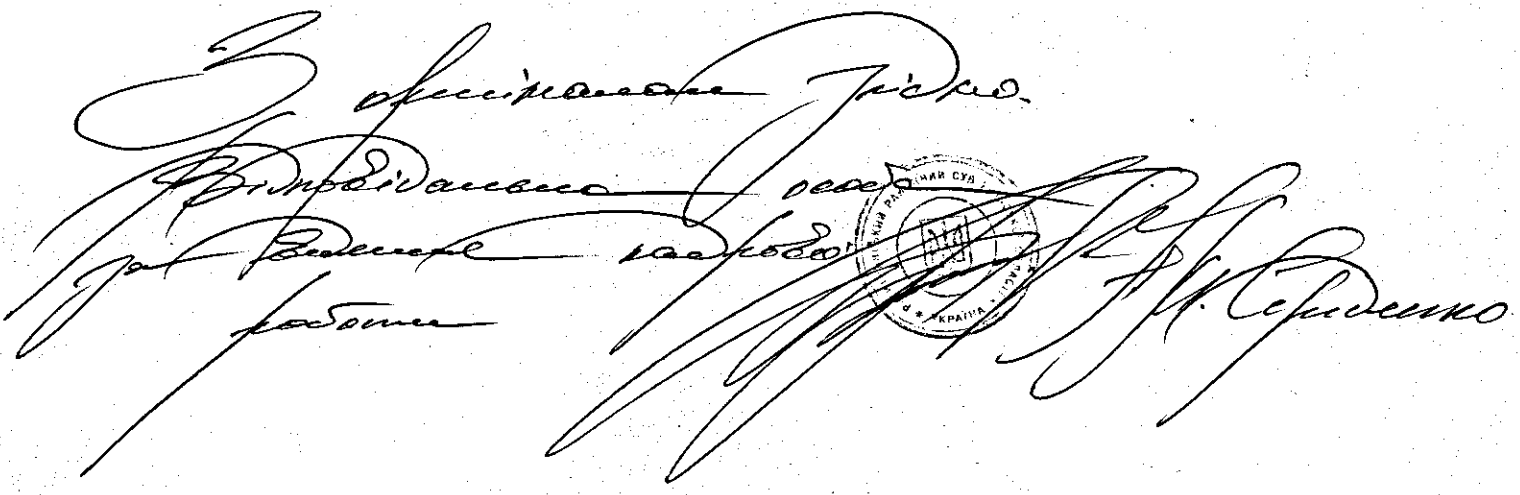 З оригіналом згідно.
Відповідальна особа
за ведення кадрової
роботи
РАЙОННИЙ СУД
УКРАЇНА